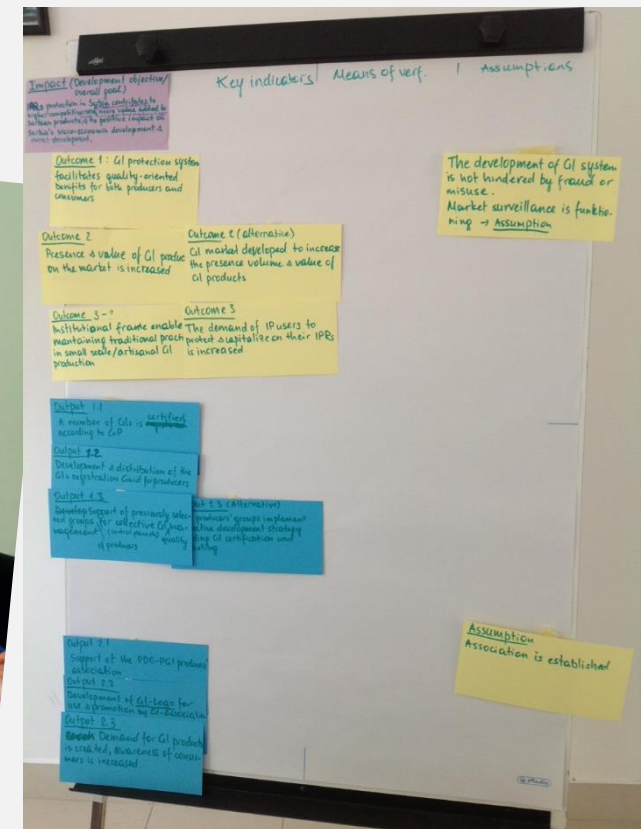 Key indicators | Means of verf. | Assumptions
Impact (Development objective/
overall goal)
protection in Serbia contributes to
higher competitiveness, more value added to
Serbian products, & to positive impact on
Serbia's socio-economic development &
rural development.
Outcome 1: GI protection system
facilitates quality-oriented
benefits for both producers and
consumers
The development of GI system
is not hindered by fraud or
misuse.
Market surveillance is functio-
ning → Assumption
Outcome 2
Presence & value of GI produc
on the market is increased
Outcome 2 (alternative)
GI market developed to increase
the presence volume & value of
GI products
Outcome 3
Institutional frame enable
maintaining traditional pract
in small scale/artisanal GI
production
Outcome 3
The demand of IP users to
protect & capitalize on their IPRs
is increased
Output 1.1
A number of GIs is certified
according to CoP
Output 1.2
Development & distribution of the
GIs registration Guid for producers
Output 1.3
Support of previously selec-
ted groups for collective GI ma-
nagement (control manuals) & quality
of products
1.3 (Alternative)
producers' groups implement
development strategy
GI certification and
Output 2.1
Support of the PDO-PGI producers'
association
Output 2.2
Development of GI-Logo for
use & promotion by GI-Associatio
Output 2.3
Demand for GI products
is created, awareness of consu-
mers is increased
Assumption
Association is established